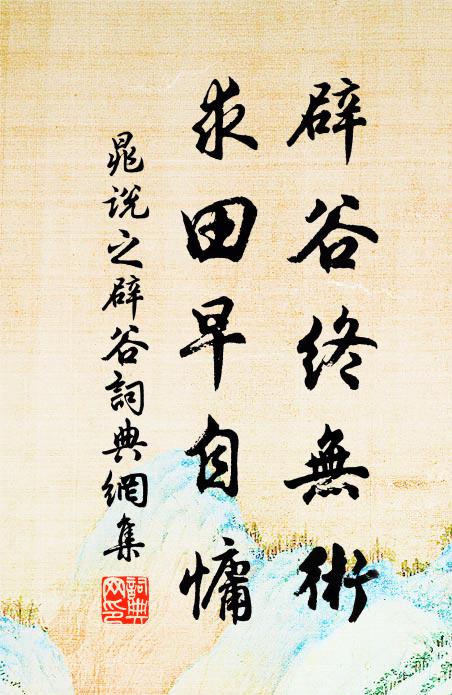 辟谷終無術
求田早自慵
晁說之辟谷詞典網集
詞典网印